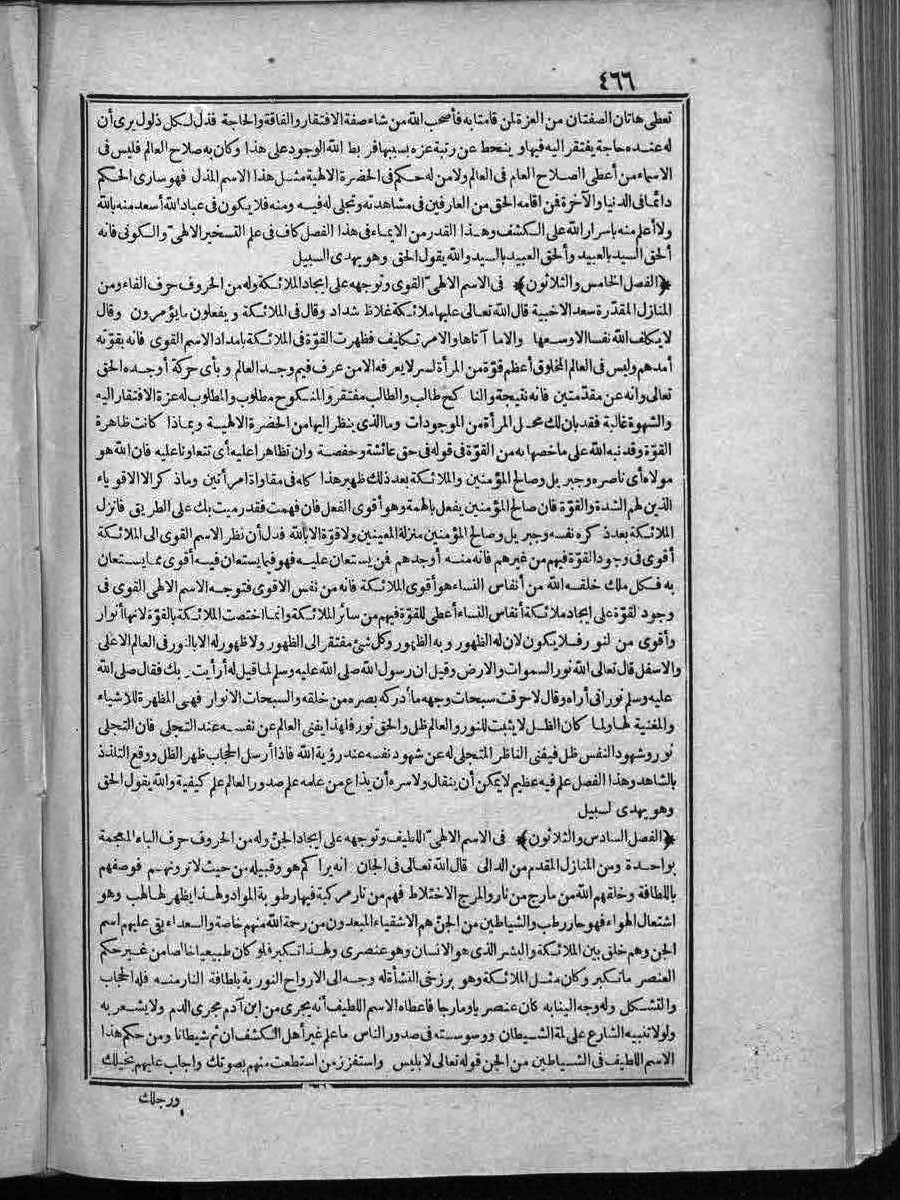 ٤٦٦
تعطى هاتان الصفتان من العزة لمن قامتا به فأصحب الله من شاء صفة الافتقار والفاقة والحاجة فذل لكل ذلول يرى أن
له عنده حاجة يفتقر اليه فيها وينحط عن رتبة عزه بسببها فربط الله الوجود على هذا وكان به صلاح العالم فليس فى
الاسماء من أعطى الصلاح العام فى العالم ولا من له حكم فى الحضرة الالهية مثل هذا الاسم المذل فهو سارى الحكم
دائما فى الدنيا والآخرة فمن اقامه الحق من العارفين فى مشاهدته وتجلى له فيه ومنه فلا يكون فى عباد الله أسعد منه بالله
ولا أعلم منه باسرار الله على الكشف وهذا القدر من الايماء فى هذا الفصل كاف فى علم التسخير الالهىّ والكونى فانه
ألحق السيد بالعبيد وألحق العبيد بالسيد والله يقول الحق وهو يهدى السبيل
﴿الفصل الخامس والثلاثون﴾ فى الاسم الالهىّ القوى وتوجهه على ايجاد الملائكة وله من الحروف حرف الفاء ومن
المنازل المقدّرة سعد الاخبية قال الله تعالى عليها ملائكة غلاظ شداد وقال فى الملائكة ويفعلون ما يؤمرون وقال
لا يكلف الله نفسا الا وسعها والا ما آتاها والامر تكليف فظهرت القوّة فى الملائكة بامداد الاسم القوى فانه بقوّته
أمدهم وليس فى العالم المخلوق أعظم قوّة من المرأة لسر لا يعرفه الا من عرف فيم وجد العالم وبأى حركة أوجده الحق
تعالى وانه عن مقدّمتين فانه نتيجة والناكح طالب والطالب مفتقر والمنكوح مطلوب والمطلوب له عزة الافتقار اليه
والشهوة غالبة فقد بان لك محل المرأة من الموجودات وما الذى ينظر اليها من الحضرة الالهية وبماذا كانت ظاهرة
القوّة وقد نبه الله على ما خصها به من القوّة فى قوله فى حق عائشة وحفصة وان تظاهرا عليه أى تتعاونا عليه فان الله هو
مولاه أى ناصره وجبريل وصالح المؤمنين والملائكة بعد ذلك ظهير هذا كله فى مقاواة امرأتين وما ذكر الا الاقوياء
الذين لهم الشدة والقوّة فان صالح المؤمنين يفعل بالهمة وهو أقوى الفعل فان فهمت فقد رميت بك على الطريق فانزل
الملائكة بعد ذكره نفسه وجبريل وصالح المؤمنين منزلة المعينين ولا قوّة الا بالله فدل أن نظر الاسم القوى الى الملائكة
أقوى فى وجود القوة فيهم من غيرهم فانه منه أوجدهم فمن يستعان عليه فهو فيما يستعان فيه أقوى مما يستعان
به فكل ملك خلقه الله من أنفاس النساء هو أقوى الملائكة فانه من نفس الاقوى فتوجه الاسم الالهى القوى فى
وجود القوّة على ايجاد ملائكة أنفاس النساء أعطى للقوة فيهم من سائر الملائكة وانما اختصت الملائكة بالقوة لانها أنوار
وأقوى من النور فلا يكون لان له الظهور وبه الظهور وكل شئ مفتقر الى الظهور ولا ظهور له الا بالنور فى العالم الاعلى
والاسفل قال تعالى الله نور السموات والارض وقيل ان رسول الله صلى الله عليه وسلم لما قيل له أرأيت ربك فقال صلى الله
عليه وسلم نور انى أراه وقال لاحرقت سبحات وجهه ما أدركه بصره من خلقه والسبحات الانوار فهى المظهرة للاشياء
والمفنية لها ولما كان الظل لا يثبت للنور والعالم ظل والحق نور فلهذا يفنى العالم عن نفسه عند التجلى فان التجلى
نور وشهود النفس ظل فيفنى الناظر المتجلى له عن شهود نفسه عند رؤية الله فاذا أرسل الحجاب ظهر الظل ووقع التلذذ
بالشاهد وهذا الفصل علم فيه عظيم لا يمكن أن ينقال ولا سره أن يذاع من علمه علم صدور العالم علم كيفية والله يقول الحق
وهو يهدى السبيل
﴿الفصل السادس والثلاثون﴾ فى الاسم الالهىّ اللطيف وتوجهه على ايجاد الجن وله من الحروف حرف الباء المعجمة
بواحدة ومن المنازل المقدم من الدالى قال الله تعالى فى الجان انه يراكم هو وقبيله من حيث لا ترونهم فوصفهم
باللطافة وخلقهم الله من مارج من نار والمرج الاختلاط فهم من نار مركبة فيها رطوبة المواد ولهذا يظهر لها لهب وهو
اشتعال الهواء فهو حار رطب والشياطين من الجن هم الاشقياء المبعدون من رحمة الله منهم خاصة والسعداء بقى عليهم اسم
الجن وهم خلق بين الملائكة والبشر الذى هو الانسان وهو عنصرى ولهذا تكبر فلو كان طبيعيا خالصا من غير حكم
العنصر ما تكبر وكان مثل الملائكة وهو برزخى النشأة له وجه الى الارواح النورية بلطافة النار منه فله الحجاب
والتشكل وله وجه الينا به كان عنصريا ومارجا فاعطاه الاسم اللطيف أنه يجرى من ابن آدم مجرى الدم ولا يشعر به
ولولا تنبيه الشارع على لمة الشيطان ووسوسته فى صدور الناس ما علم غير أهل الكشف ان ثم شيطانا ومن حكم هذا
الاسم اللطيف فى الشياطين من الجن قوله تعالى لابليس واستفزز من استطعت منهم بصوتك واجلب عليهم بخيلك
ورجلك